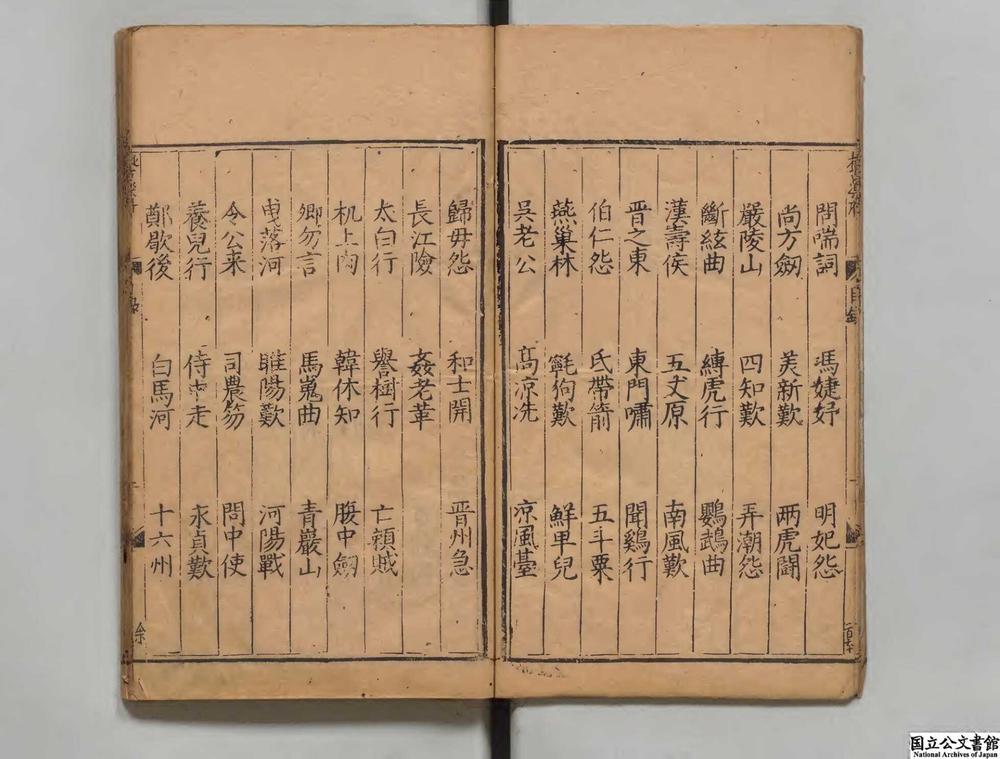 問喘詞 馮婕妤 明妃怨
尚方劒 美新歎 兩虎鬪
嚴陵山 四知歎 弄潮怨
斷絃曲 縛虎行 鸚鵡曲
漢壽侯 五丈原 南風歎
晋之東 東門嘯 聞鷄行
伯仁怨 氐帶箭 五斗粟
燕巢林 㲯狗歎 鮮卑兒
吳老公 高涼洗 凉風臺
歸母怨 和士開 晋州急
長江險 姦老革
太白行 譽樹行 亡賴賊
机上肉 韓休知 腹中劒
卿勿言 馬嵬曲 青巖山
曳落河 睢陽歎 河陽戰
令公来 司農笏 問中使
養兒行 侍中走 永貞歎
鄭歇後 白馬河 十六州
目錄
余
国立公文書館
National Archives of Japan